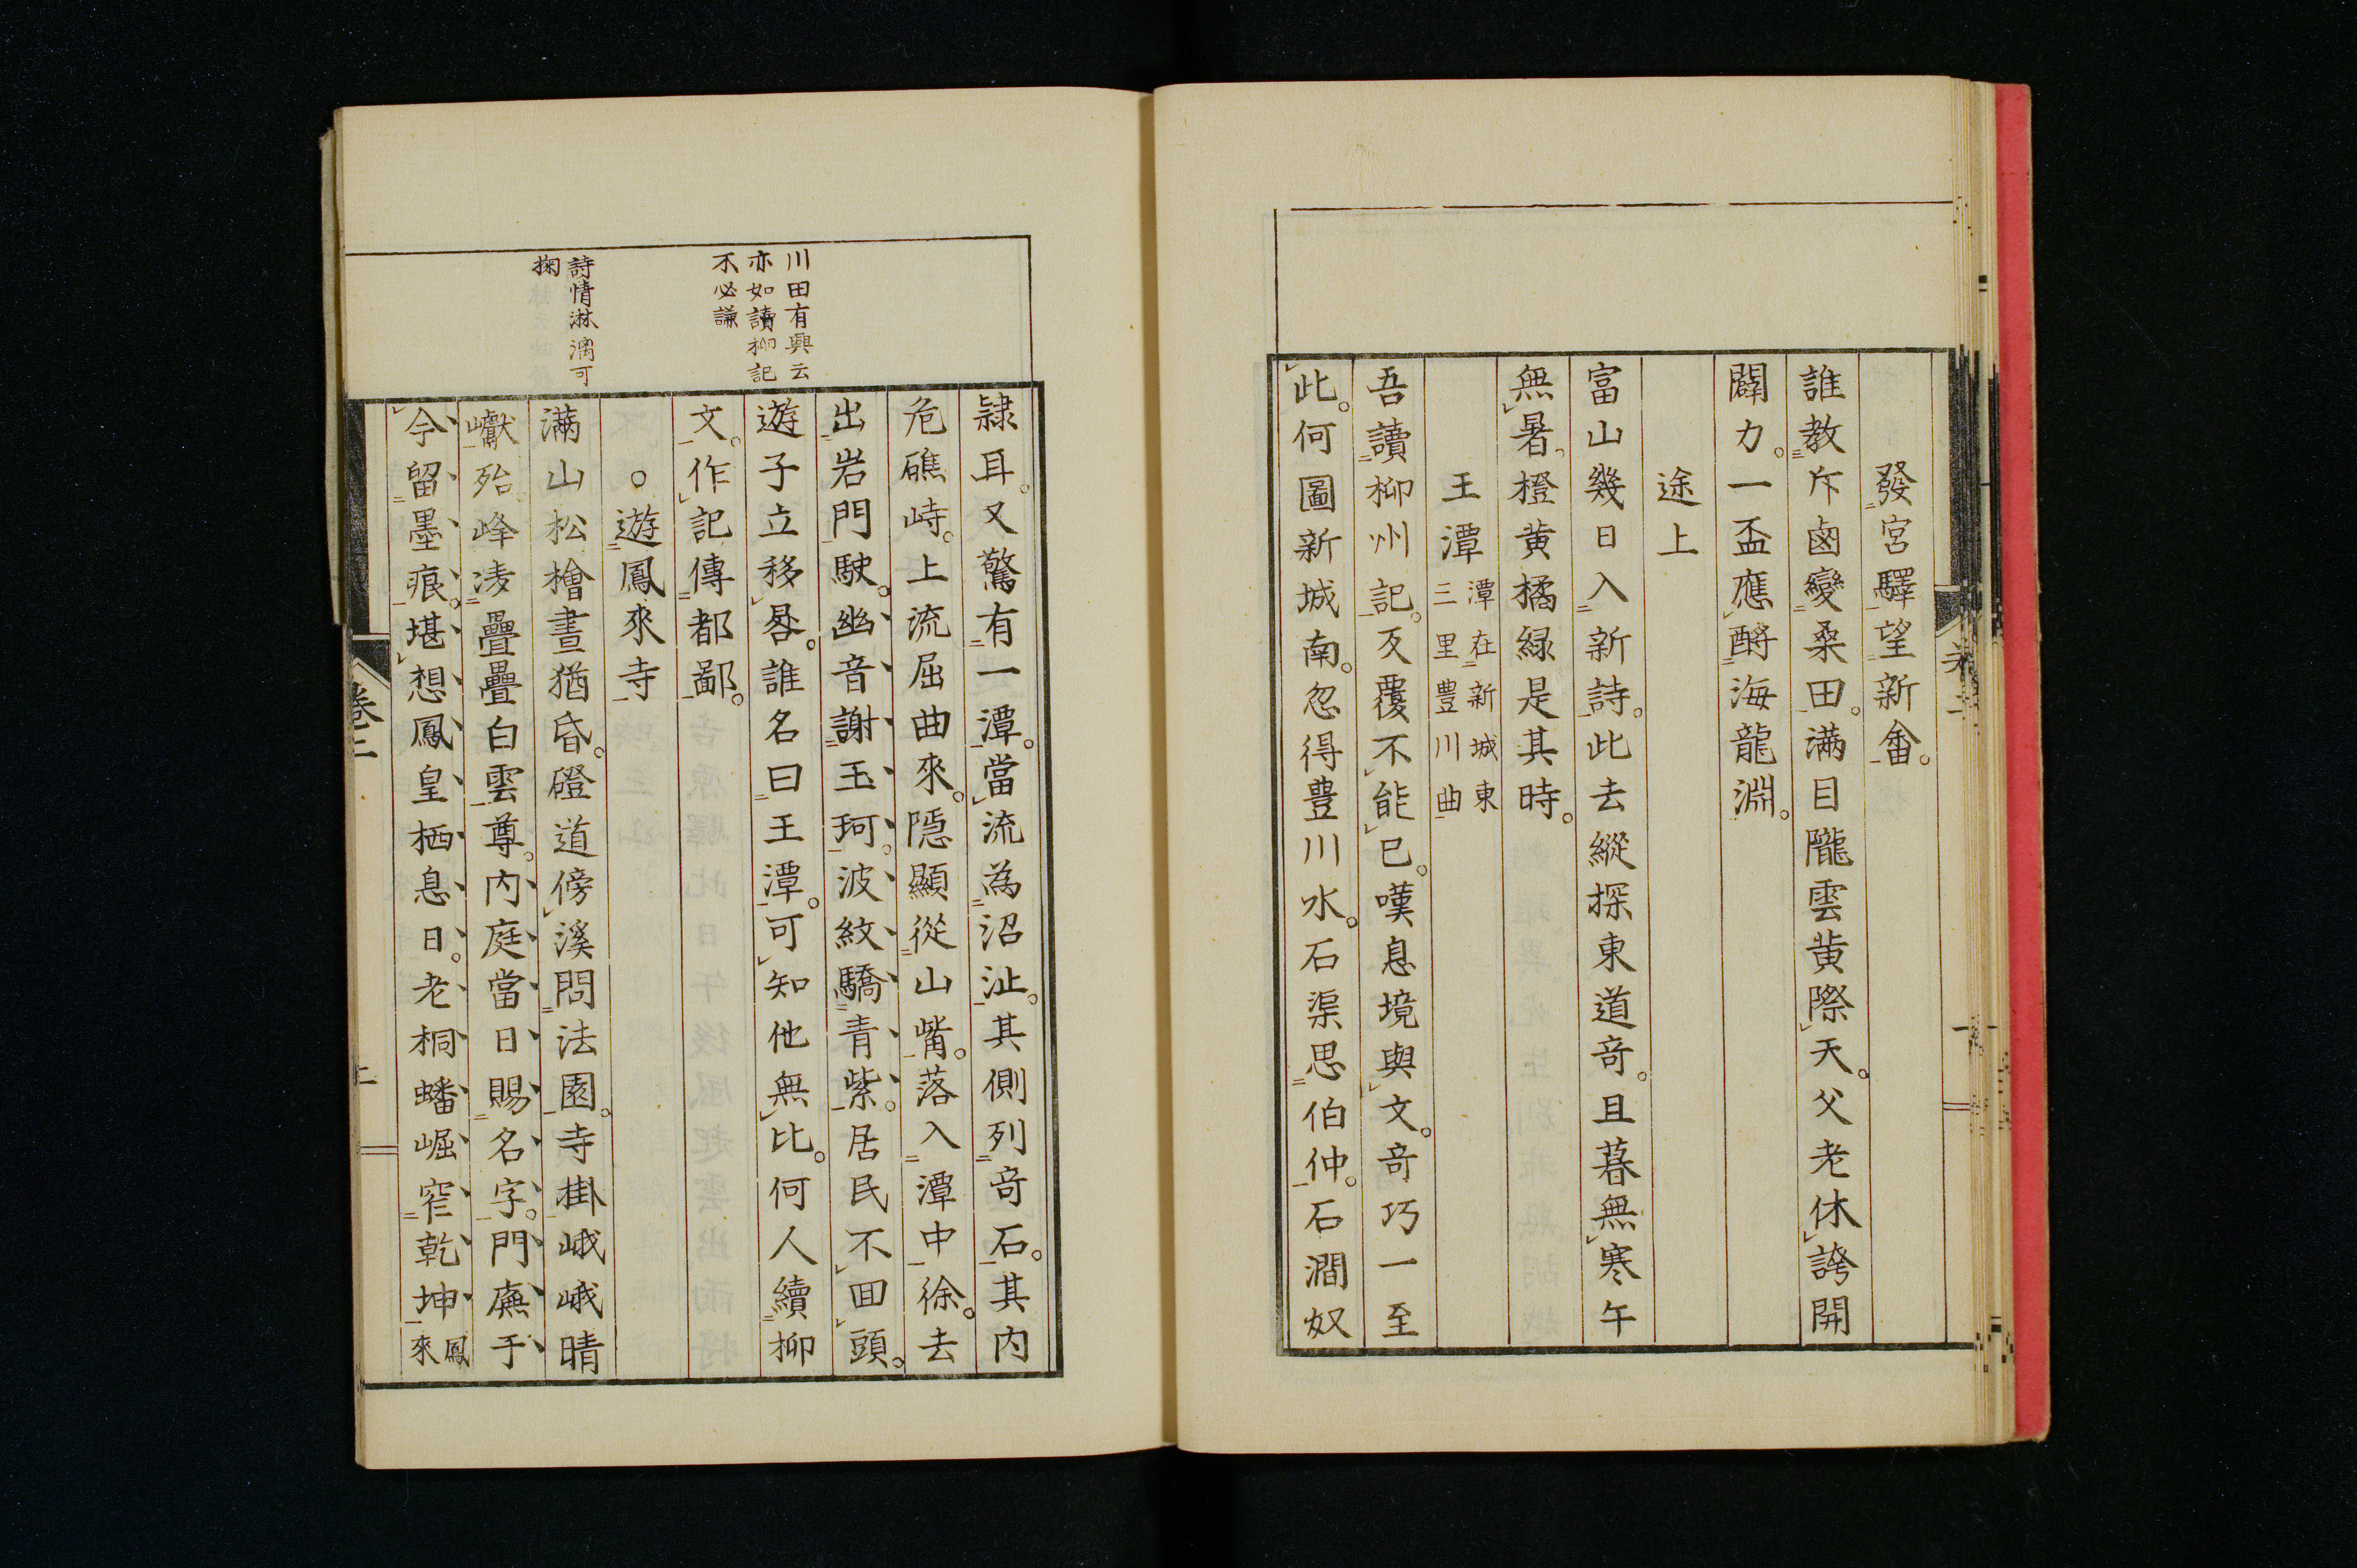 發宮驛望新畬。
誰教斥鹵變桑田。滿目隴雲黄際天。父老休誇開
闢力。一盃應酹海龍淵。
途上
富山幾日入新詩。此去縱探東道竒。且暮無寒午
無暑。橙黄橘緑是其時。
王潭 潭在新城東
三里豊川曲
吾讀柳州記。反覆不能已。嘆息境與文。竒巧一至
此。何圖新城南。忽得豊川水。石渠思伯仲。石澗奴
隷耳。又驚有一潭。當流為沼沚。其側列竒石。其内
危礁峙。上流屈曲來。隠顯從山觜。落入潭中徐。去
出岩門駛。幽音謝玉珂。波紋驕青紫。居民不回頭。
遊子立移晷。誰名曰王潭。可知他無比。何人續柳
文。作記傳都鄙。
○遊鳳來寺
滿山松檜晝猶昏。磴道傍溪問法園。寺掛峨峨晴
巘殆。峰凌疊疊白雲尊。内庭當日賜名字。門廡于
今留墨痕。堪想鳳皇栖息日。老桐蟠崛窄乾坤 鳳
來
川田有興云
亦如讀柳記
不必謙
詩情淋漓可
掬
卷二